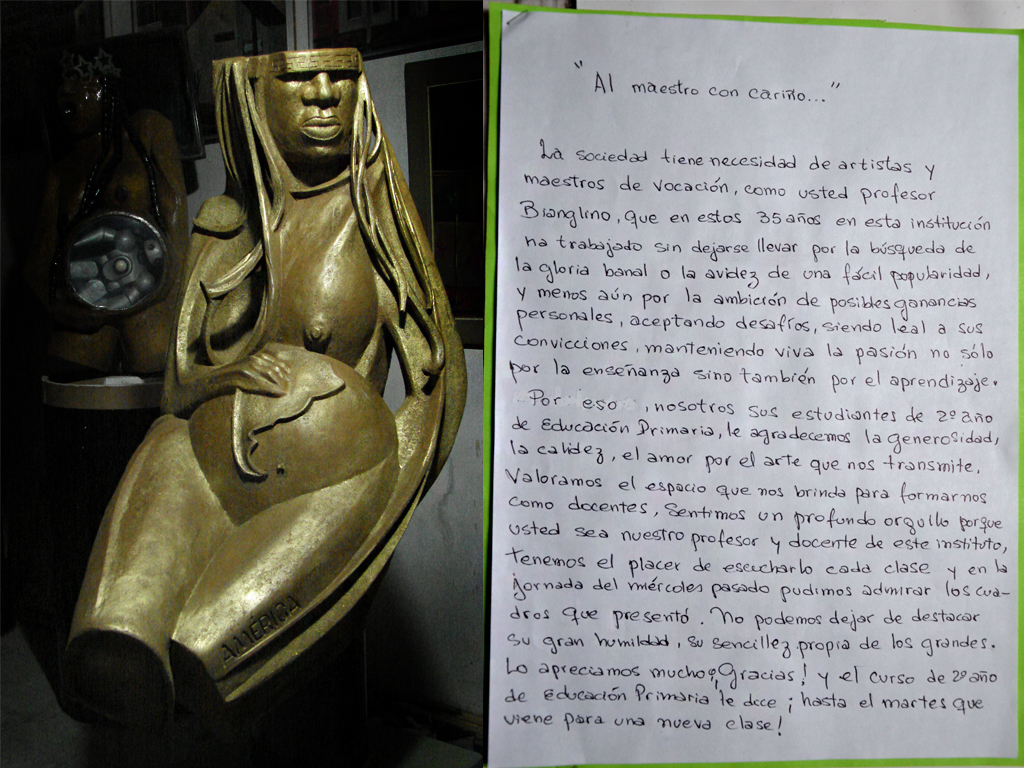 AMÉRICA
"Al maestro con cariño..."
La sociedad tiene necesidad de artistas y
maestros de vocación, como usted profesor
Bianglino, que en estos 35 años en esta institución
ha trabajado sin dejarse llevar por la búsqueda de
la gloria banal o la avidez de una fácil popularidad,
y menos aún por la ambición de posibles ganancias
personales, aceptando desafíos, siendo leal a sus
convicciones, manteniendo viva la pasión no sólo
por la enseñanza sino también por el aprendizaje.
Por eso , nosotros sus estudiantes de 2º año
de Educación Primaria, le agradecemos la generosidad,
la calidez, el amor por el arte que nos transmite.
Valoramos el espacio que nos brinda para formarnos
como docentes, Sentimos un profundo orgullo porque
usted sea nuestro profesor y docente de este instituto,
tenemos el placer de escucharlo cada clase y en la
jornada del miércoles pasado pudimos admirar los cua-
dros que presentó. No podemos dejar de destacar
su gran humildad, su sencillez propia de los grandes.
Lo apreciamos mucho ¡Gracias! y el curso de 2º año
de Educación Primaria le dice ¡hasta el martes que
viene para una nueva clase!